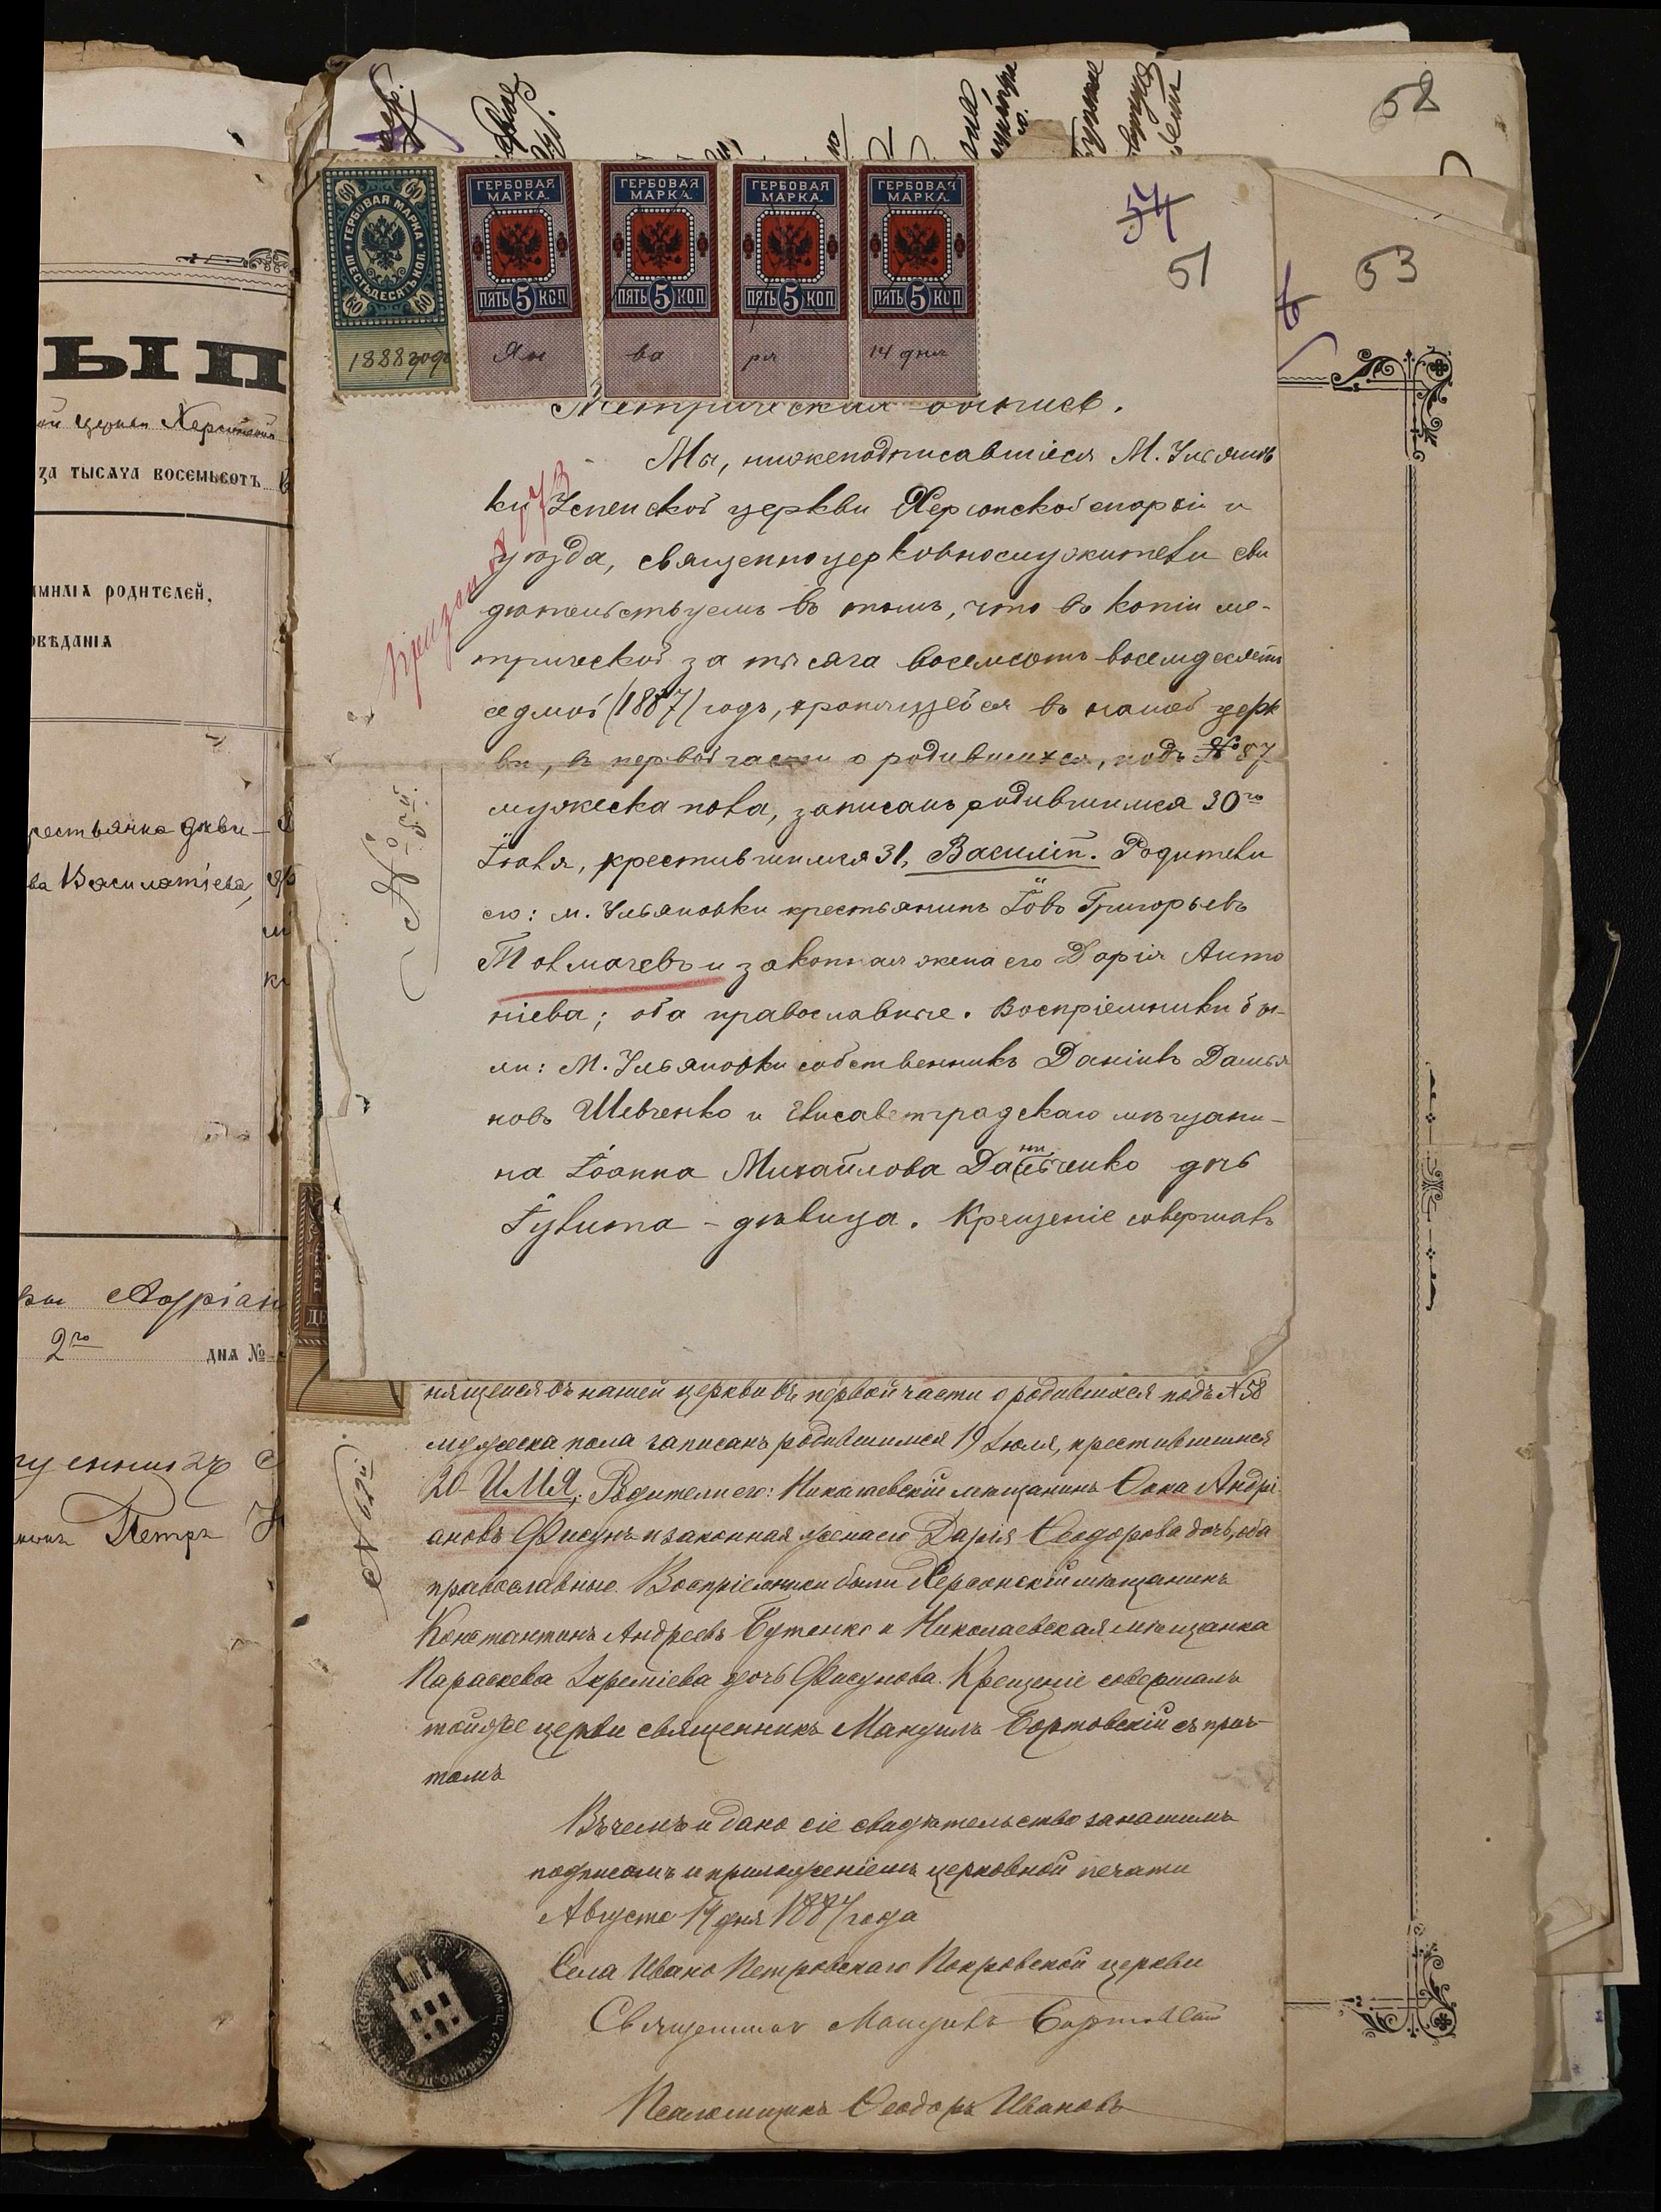 52
53
54
51
60
60
ГЕРБОВАЯ МАРКА
ШЕСТЬДЕСЯТЪ КОП.
60
60
1888 года
ГЕРБОВАЯ
МАРКА.
ПЯТЬ 5 КОП
Ян
ГЕРБОВАЯ
МАРКА.
ПЯТЬ 5 КОП
ва
ГЕРБОВАЯ
МАРКА.
ПЯТЬ 5 КОП
ря
ГЕРБОВАЯ
МАРКА.
ПЯТЬ 5 КОП
14 дня
Метрическая выпись.
Мы, нижеподписавшіеся М. Ульянов
ки Успенской церкви Херсонской епархіи и
уѣзда, священноцерковнослужители сви
дѣтельствуемъ въ томъ, что въ копіи ме-
трической за тысяча восемсотъ восемдесятъ
седмой (1887) годъ, хранящейся въ нашей церк
ви, въ первой части о родившихся, подъ № 87
мужеска пола, записанъ родившимся 30го
Іюля, крестившимся 31, Василій. Родители
его: м. Ульяновки крестьянинъ Іовъ Григорьевъ
Толмачевъ и законная жена его Дарія Анто
ніева; оба православные. Воспріемники бы-
ли: М. Ульяновки собственникъ Даніилъ Дамья
новъ Шевченко и Елисаветградскаго мѣщани-
на Іоанна Михайлова дочь
Іулита - дѣвица. Крещеніе совершалъ
нящейся въ нашей церкви въ первой части о родившихся подъ № 58
мужеска пола записанъ родившимся 19 Іюля, крестившимся
20 - ИЛІЯ; Родители его: Николаевскій мѣщанинъ Ѳока Андрі
ановъ Фисунъ и законная жена его Дарія Ѳеодорова дочь, оба
православные. Воспріемники были Херсонскій мѣщанинъ
Константинъ Андреевъ Бутенко и Николаевская мѣщанка
Параскева Іереміева дочь Фисунова. Крещеніе совершалъ
той же церкви священникъ Мануилъ Бортовскій съ прич-
томъ
Въ чемъ и дано сіе свидѣтельство за нашимъ
подписомъ и приложеніемъ церковной печати
Августа 14 дня 1887 года
Села Ивано Петровскаго Покровской церкви
Священникъ Мануилъ Бортовскій
Псаломщикъ Ѳеодоръ Ивановъ
ЫП
церкви Херсонской
ЗА ТЫСЯЧА ВОСЕМЬСОТЪ
РОДИТЕЛЕЙ,
ОВѢДАНІЯ
рестьянка дѣви-
ва Василатіева,
2го ДНЯ №
Петръ